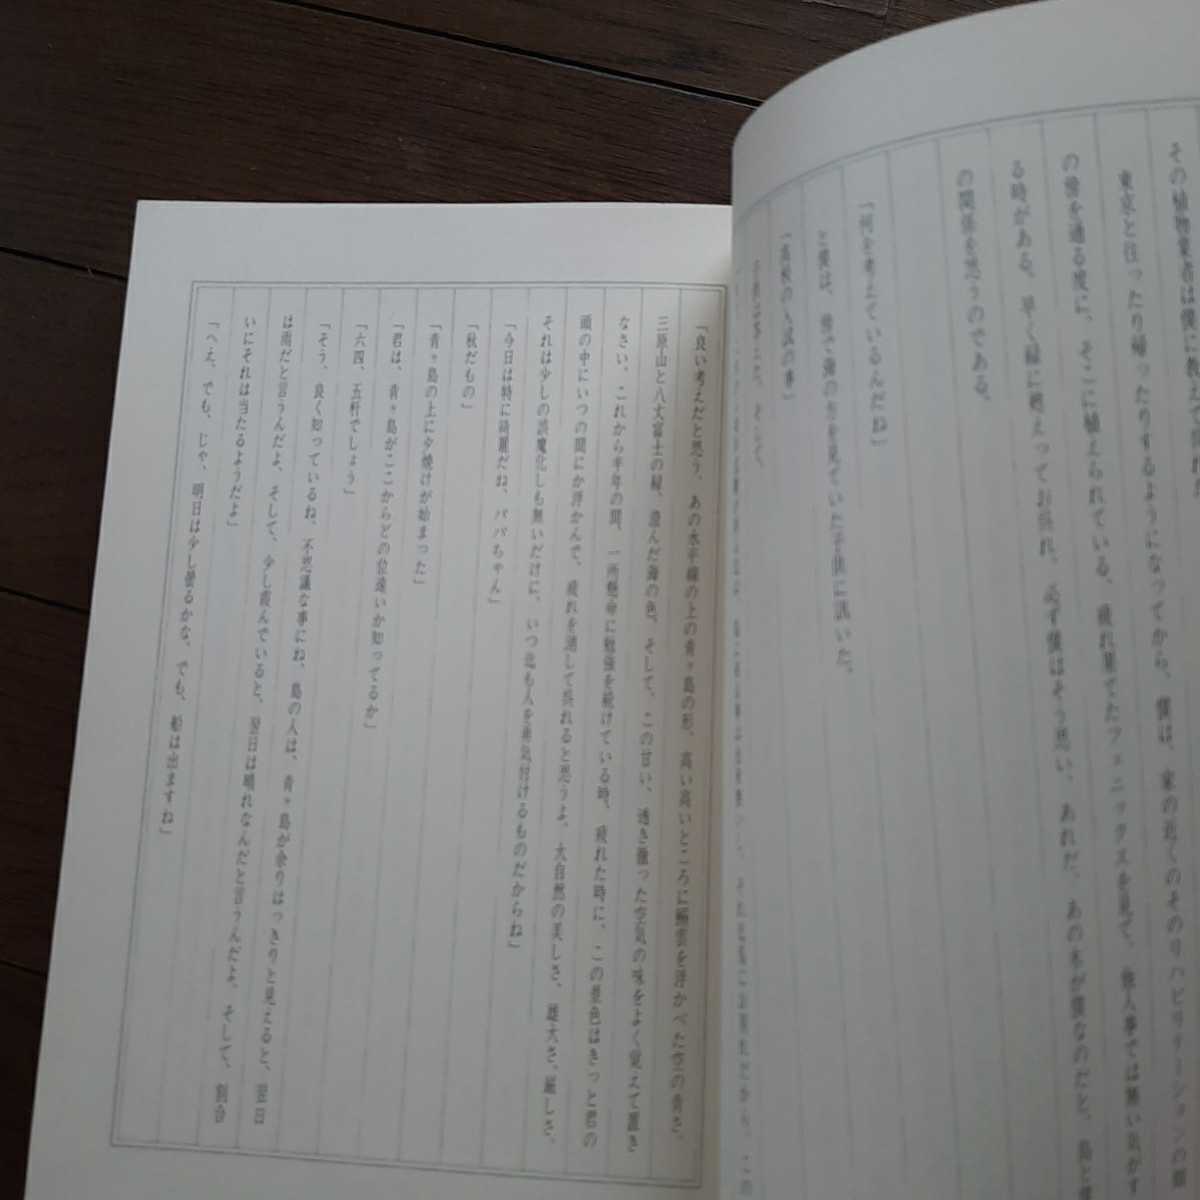 その植物業者は僕に教えて呉れた
東京と往ったり帰ったりするようになってから、僕は、家の近くのそのリハビリテーションの畑
の傍を通る度に、そこに植えられている、疲れ果てたフェニックスを見て、他人事では無い気がす
る時がある。早く緑に甦えってお呉れ。必ず僕はそう思い、あれだ、あの木が僕なのだと、島と僕
の関係を想うのである。
「何を考えているんだね」
と僕は、傍で海の方を見ていた子供に訊いた。
「高校の入試の事」
子供は答えた。そして、
「良い考えだと思う。あの水平線の上の青ヶ島の形、高い高いところに鰯雲を浮かべた空の青さ、
三原山と八丈富士の緑、澄んだ海の色、そして、この甘い、透き徹った空気の味をよく覚えて置き
なさい。これから半年の間、一所懸命に勉強を続けている時、疲れた時に、この景色はきっと君の
頭の中にいつの間にか浮かんで、疲れを消して呉れると思うよ。大自然の美しさ、雄大さ、厳しさ、
それは少しの誤魔化しも無いだけに、いつ迄も人を勇気付けるものだからね」
「今日は特に綺麗だね、パパちゃん」
「秋だもの」
「青ヶ島の上に夕焼けが始まった」
「君は、青ヶ島がここからどの位遠いか知ってるか」
「六四、五粁でしょう」
「そう、良く知っているね、不思議な事にね、島の人は、青ヶ島が余りはっきりと見えると、翌日
は雨だと言うんだよ、そして、少し霞んでいると、翌日は晴れなんだと言うんだよ。そして、割合
いにそれは当たるようだよ」
「へえ、でも、じゃ、明日は少し曇るかな。でも、船は出ますね」